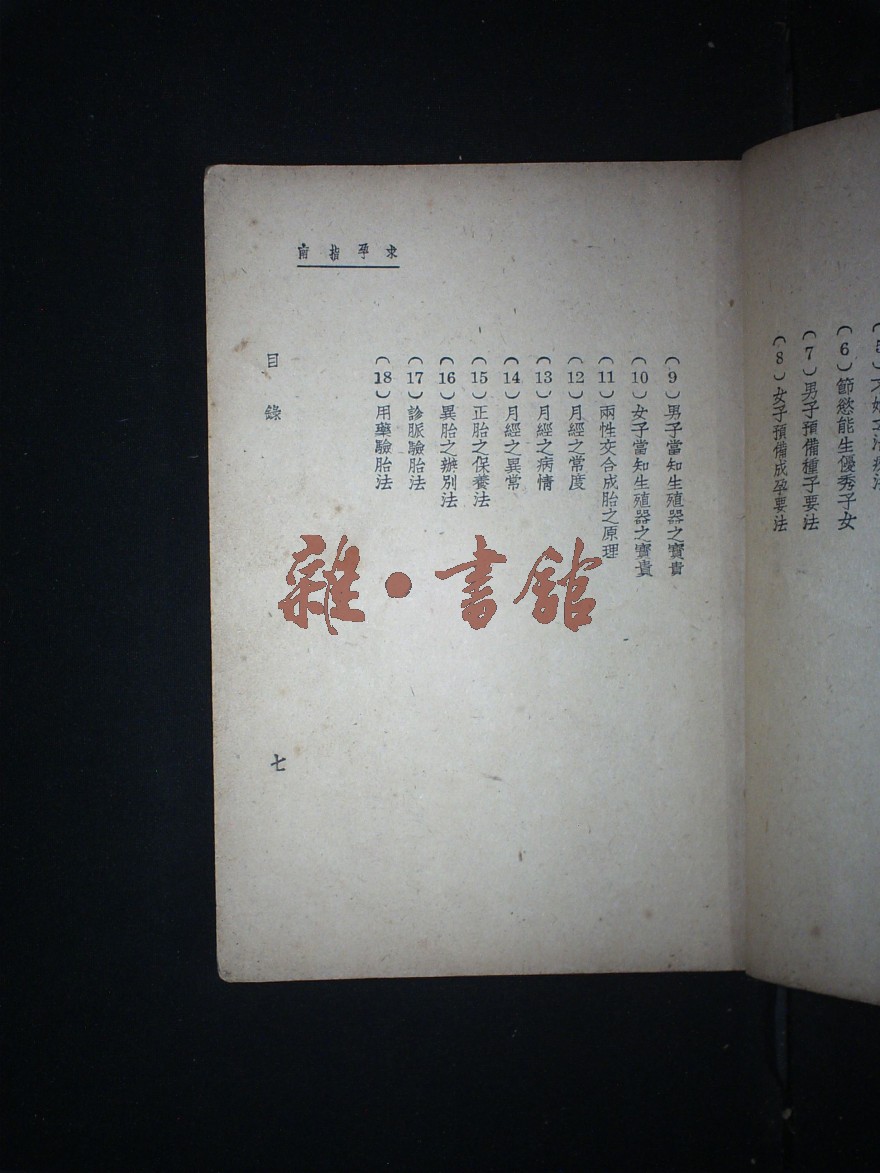 節慾能生優秀子女
(6)節慾能生優秀子女
(7)男子預備種子要法
(8)女子預備成孕要法
求孕指南
(9)男子當知生殖器之寶貴
(10)女子當知生殖器之寶貴
(11)兩性交合成胎之原理
(12)月經之常度
(13)月經之病情
(14)月經之異常
(15)正胎之保養法
(16)異胎之辦別法
(17)診脈驗胎法
(18)用藥驗胎法
目錄
七
雜·書館